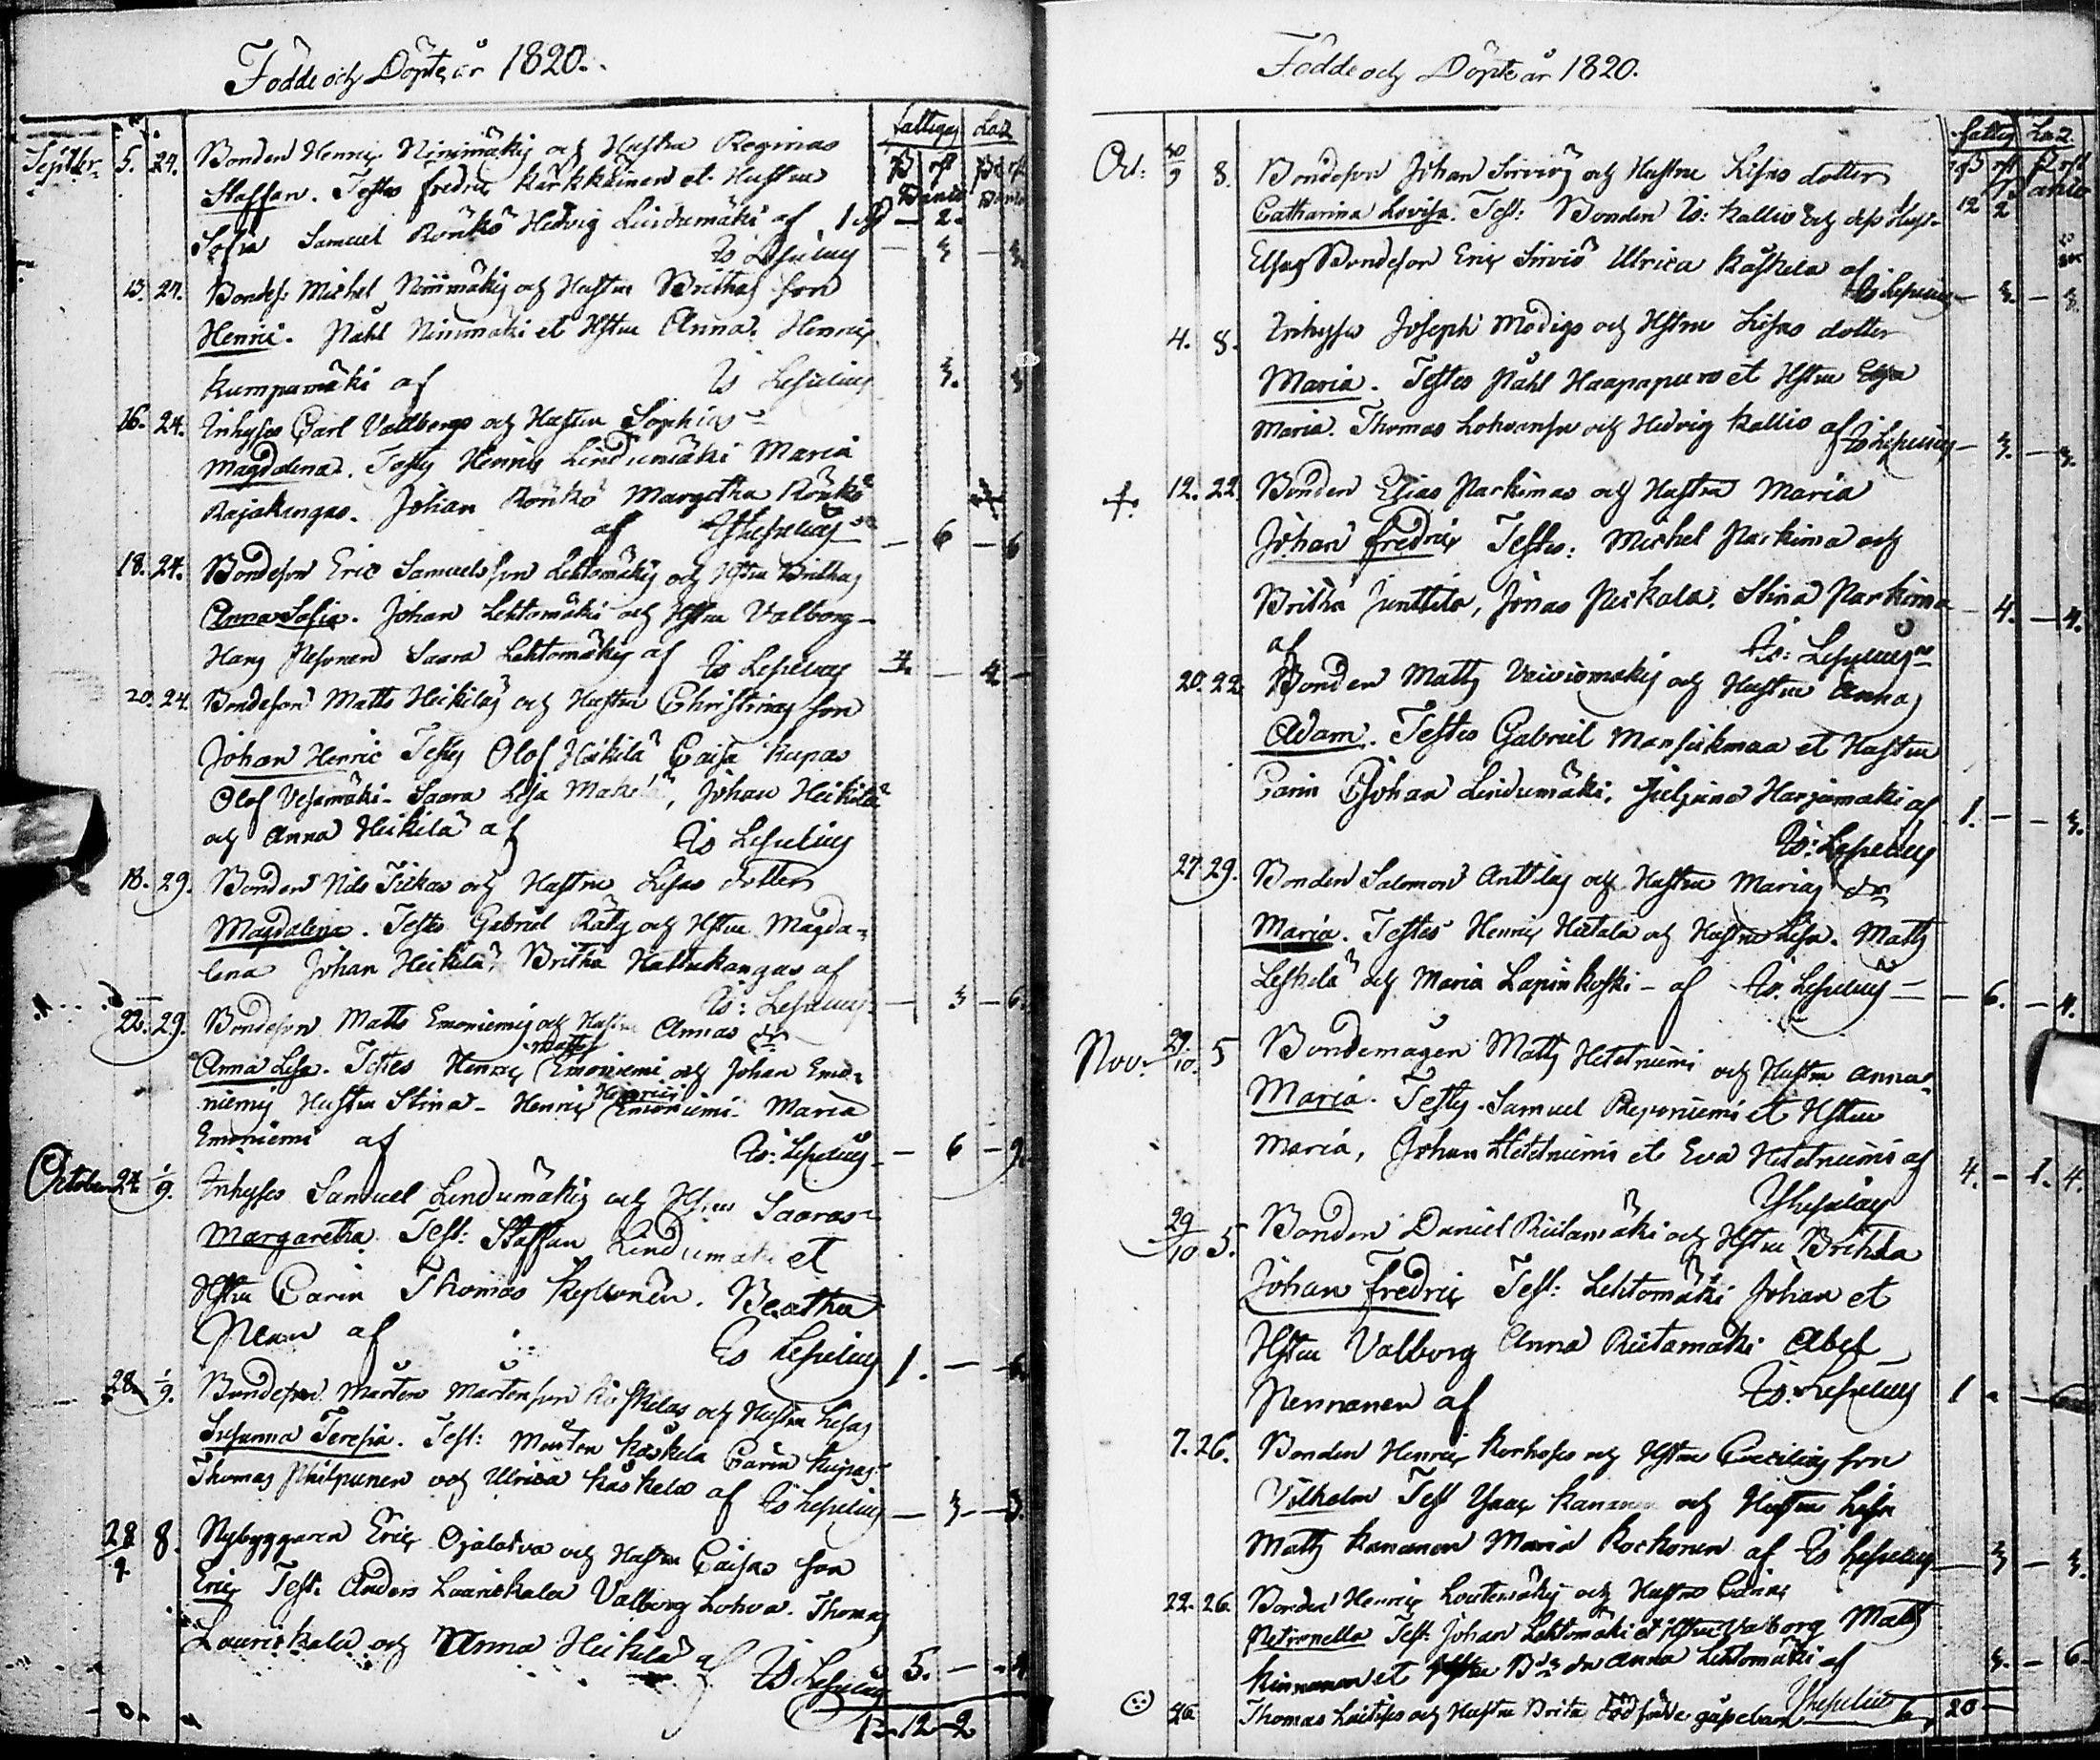 Födde och Döpte år 1820.
fattiga Laz
Septbr. 5. 24. Bonden Henric Ninimäkis och Hustru Reginas
Staffan. Testes fredric Kärkkäinen et Hustru
Sofia Samuel Rönkö Hedvig Lindumäki af 1 2
13. 24. Bondes: Michel Niinimäkis och Hustru Brithas son
Henric. Påhl Ninimäki et Hstru Anna. Henric
Kumpumäki af 3. 3
16. 24. Inhyses Carl Vallbergs och Hustru Sophias
Magdalena. Testes Henric Lindumäki Maria
Rajakangas. Johan Rönkö Margetha Rönkö
af 6 6
18. 24. Bondeson Eric Samuelsson Lehtomäkis och Hstru Brithas
Anna Sofia. Johan Lehtomäki och Hstru Valborg
Hans Pesonen Saara Lehtomäki af 4. 4
20. 24. Bondeson Matts Heikiläs och Hustru Christinas son
Johan Henric Testes Olof Heikilä Caisa Kupas
Olof Vesamäki Saara Lisa Mäkelä, Johan Heikilä
och Anna Heikilä af
18. 29. Bonden Nils Tickas och Hustru Lisas dotter
Magdalena. Testes Gabriel Räty och Hstru Magda-
lena Johan Heikilä Britha Hallukangas af
3 6.
22. 29. Bondeson Matts Emoniemis och Hustru Annas dr
Anna Lisa. Testes Henric Mattss Emoniemi och Johan Emo-
niemis Hustru Stina - Henric Henrici Emoniemi - Maria
Emoniemi af 6 9.
October 24. 1/9. Inhyses Samuel Lindumäkis och Hstru Saaras
Margaretha. Test: Staffan Lindumäki et
Hstru Carin Thomas Kyllönen. Beatha
af 1. 6
28. 1/9. Bondeson Mårten Mårtensson Käskeläs och Hustru Lisas
Susanna Teresia. Test: Mårten Käskelä Carin Kupas
Thomas Philpunen och Ulrica Käskelä af 3 3.
28/9 8. Nybyggaren Eric Ojalatva och Hustru Caisas son
Eric Test: Anders Lauriskala Valborg Lohva. Thomas
Lauriskala och Anna Heikilä af 5. 4
12 2
Födde och Döpte år 1820.
fattig Laz
Oct: 30/9 8. Bondeson Johan Sirviös och Hustru Lisas dotter
Catharina Lovisa. Test: Bonden Is: Kallio och dess Hust-
Elsa Bondeson Eric Sirviö Ulrica Käskelä af
3. 3.
4. 8. Inhyses Joseph Modigs och Hstru Lisas dotter
Maria. Testes Påhl Haapapuro et Hstru
Maria. Thomas Lohvansu och Hedvig Kallio af 3. 3.
12. 22. Bonden Elias Parkimas och Hustru Maria
Johan Fredric Testes: Michel Parkima och
Britha Junttila, Jonas Piskala. Stina Parkima 4. 4.
af
20. 22. Bonden Matts och Hustru Annas
Adam. Testes Gabriel Mansikmaa et Hustru
Carin Johan Lindumäki, Juliana Harjumäki af 1. 3.
27 29. Bonden Salomon Anttilas och Hustru Marias dr
Maria. Testes Henric Hietala och Hustru Lisa. Matts
Leskelä och Maria Lapinkoski - af 6. 4.
Nov: 29/10. 5 Bondemågen Matts Hetetniemi och Hustru Annas
Maria. Testes Samuel Reponiemi et Hstru
Maria, Johan Hetetniemi et Eva Hetetniemi af 4. 1. 4.
29/10 5. Bonden Daniel Riitamäki och Hstru Britha
Johan Fredric Test: Lehtomäki Johan et
Hstru Valborg Anna Riitamäki Abel
Nennanen af 1
7. 26. Bonden Henric Korhoses och Hstru Caecilias son
Vilhelm Test Isaac Kananen och Hustru Lisa
Matts Kananen Maria Korhonen af 3 3.
22. 26. Bonden Henric och Hustru Carins
Petronella Test: Johan Lehtomäki et Hstru Valborg Matts
Kinnunen et Anna Lehtomäki af 3. 6
26 Thomas och Hustru Brita 20